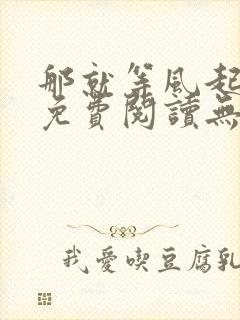 那就等风起
免費閱讀無
我愛喫豆腐乳